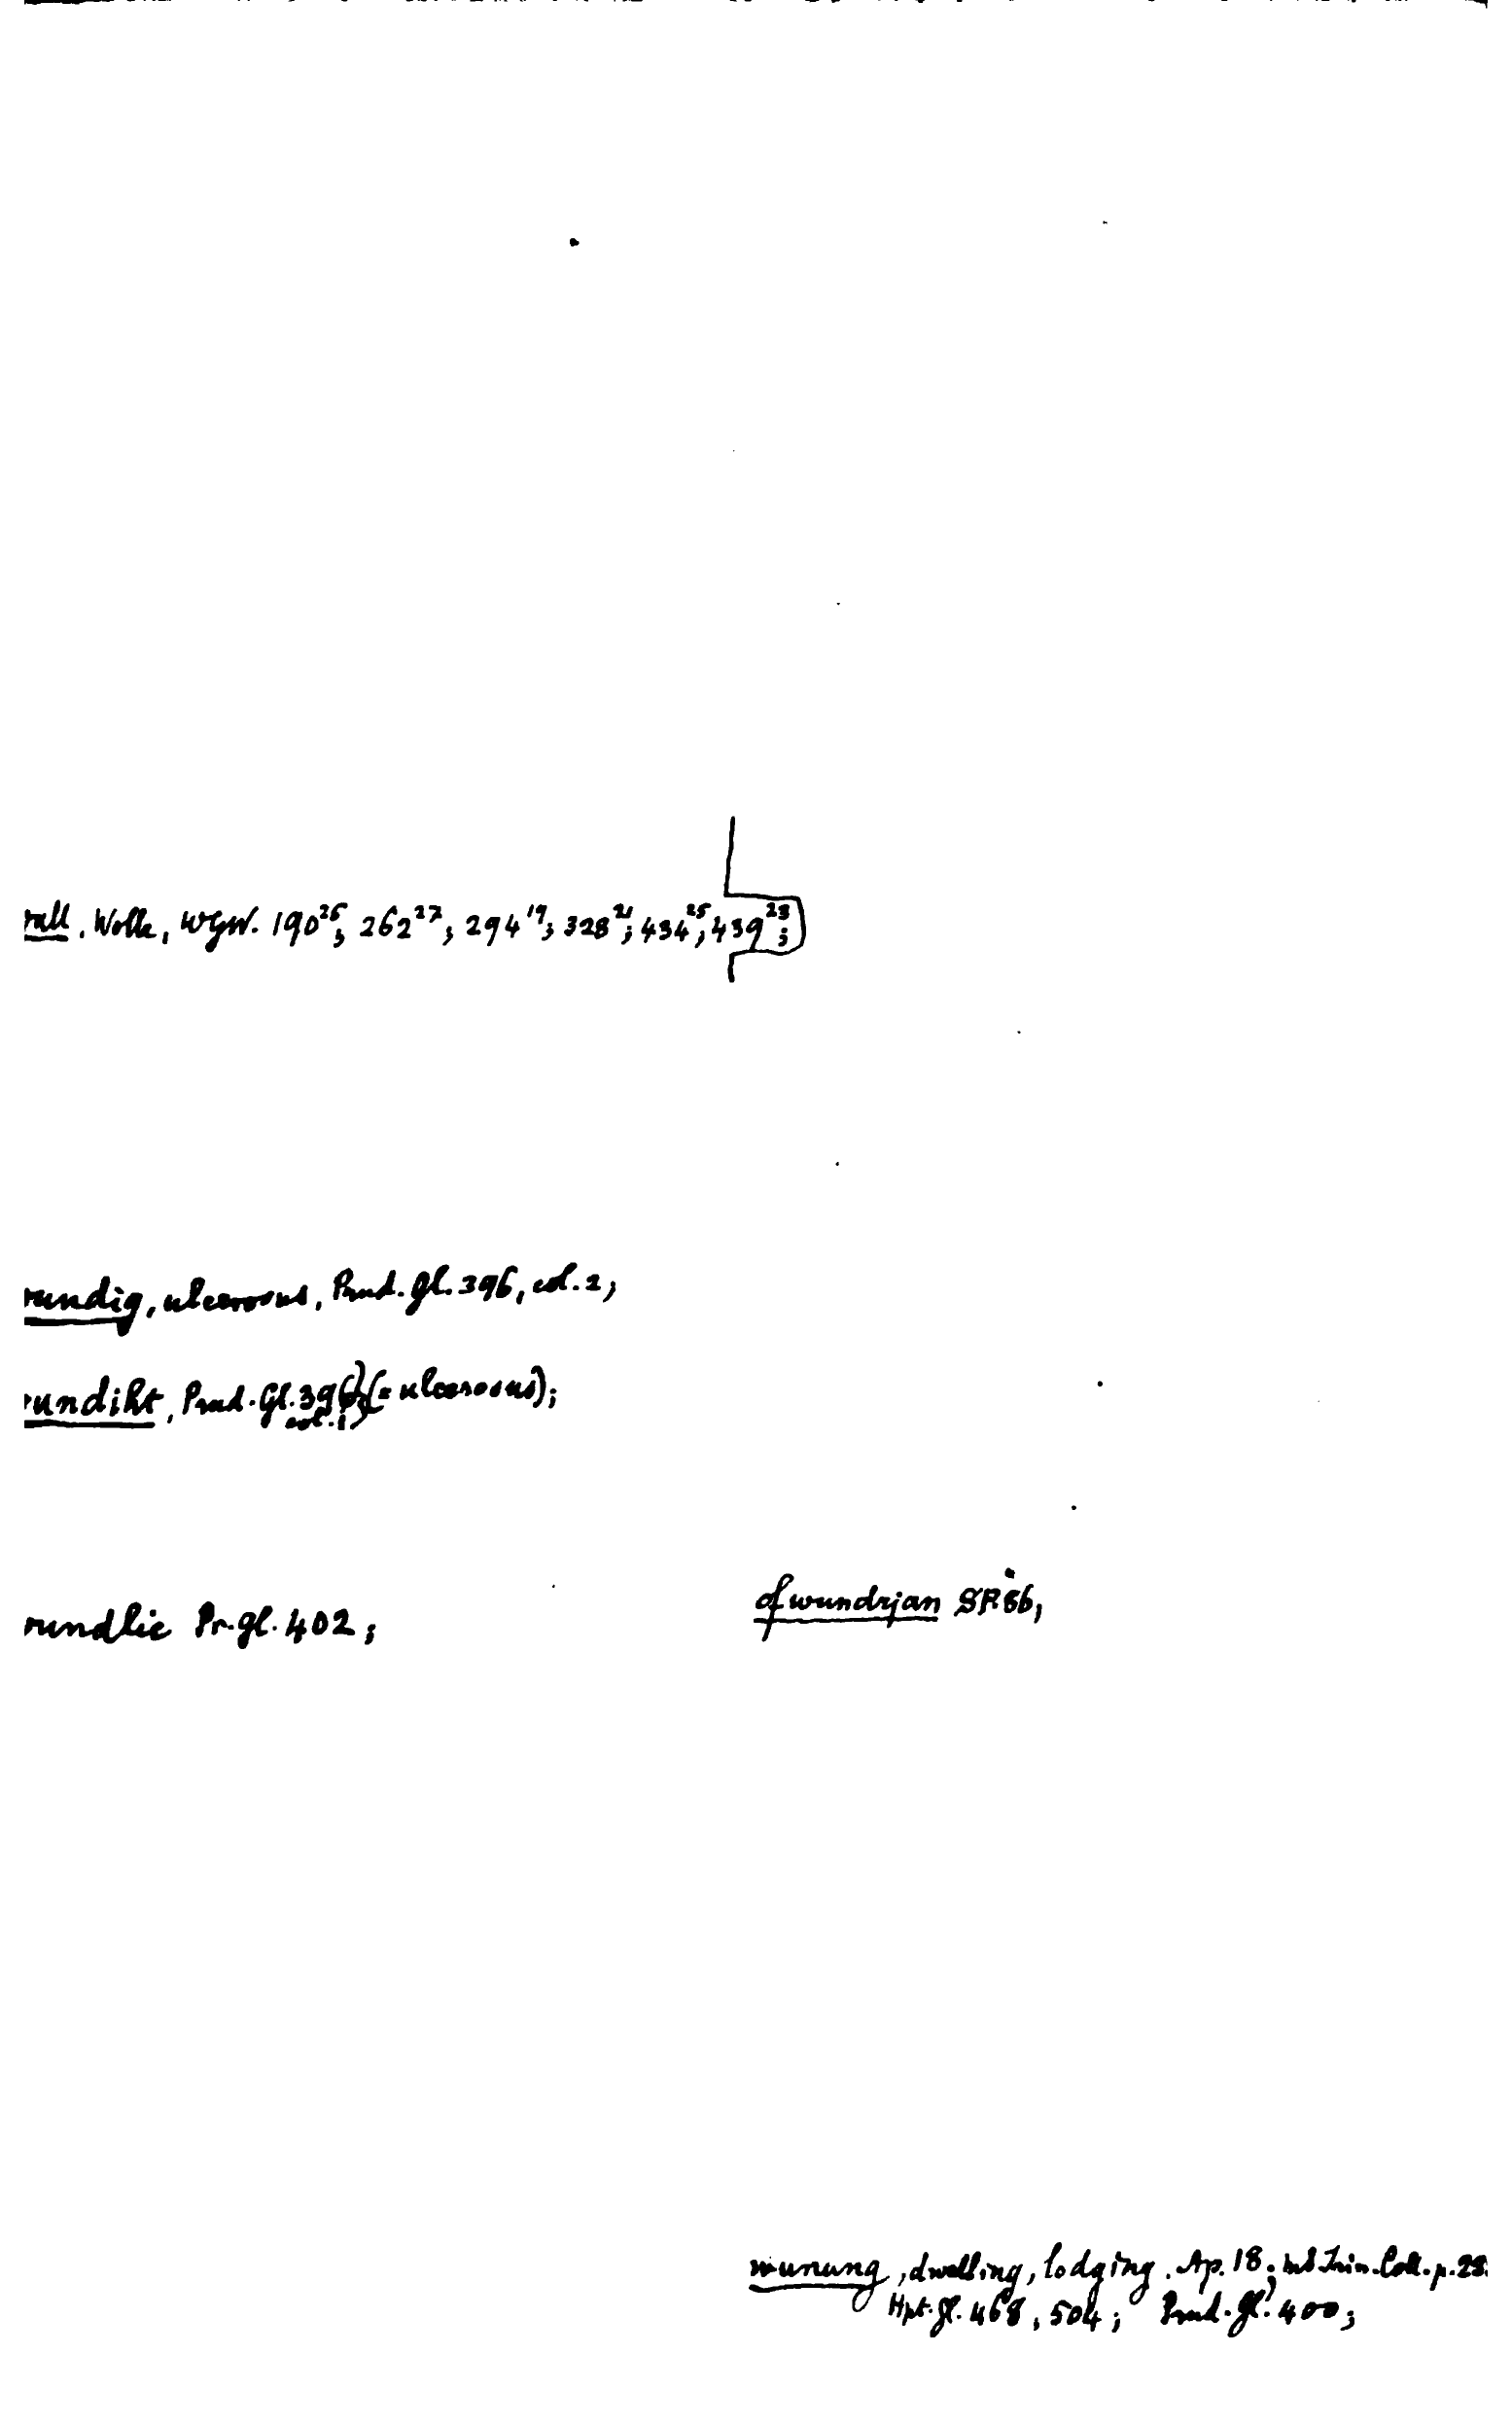 wull, Wolle, WgW. 190²⁵; 262²⁷; 294¹⁹; 328²¹; 434²⁵; 439²³;
wundig, ulcerosus, Prud. Gl. 396, col. 2;
wundiht, Prud. Gl. 396 (= ulcerosus);
col. 1
wundlic Pr. gl. 402;
ofwundrjan SP. 86,
wunung, dwelling, lodging. Ap. 18; MS Trin. Coll. p. 28
Hpt. gl. 468, 504; Prud. gl. 400;